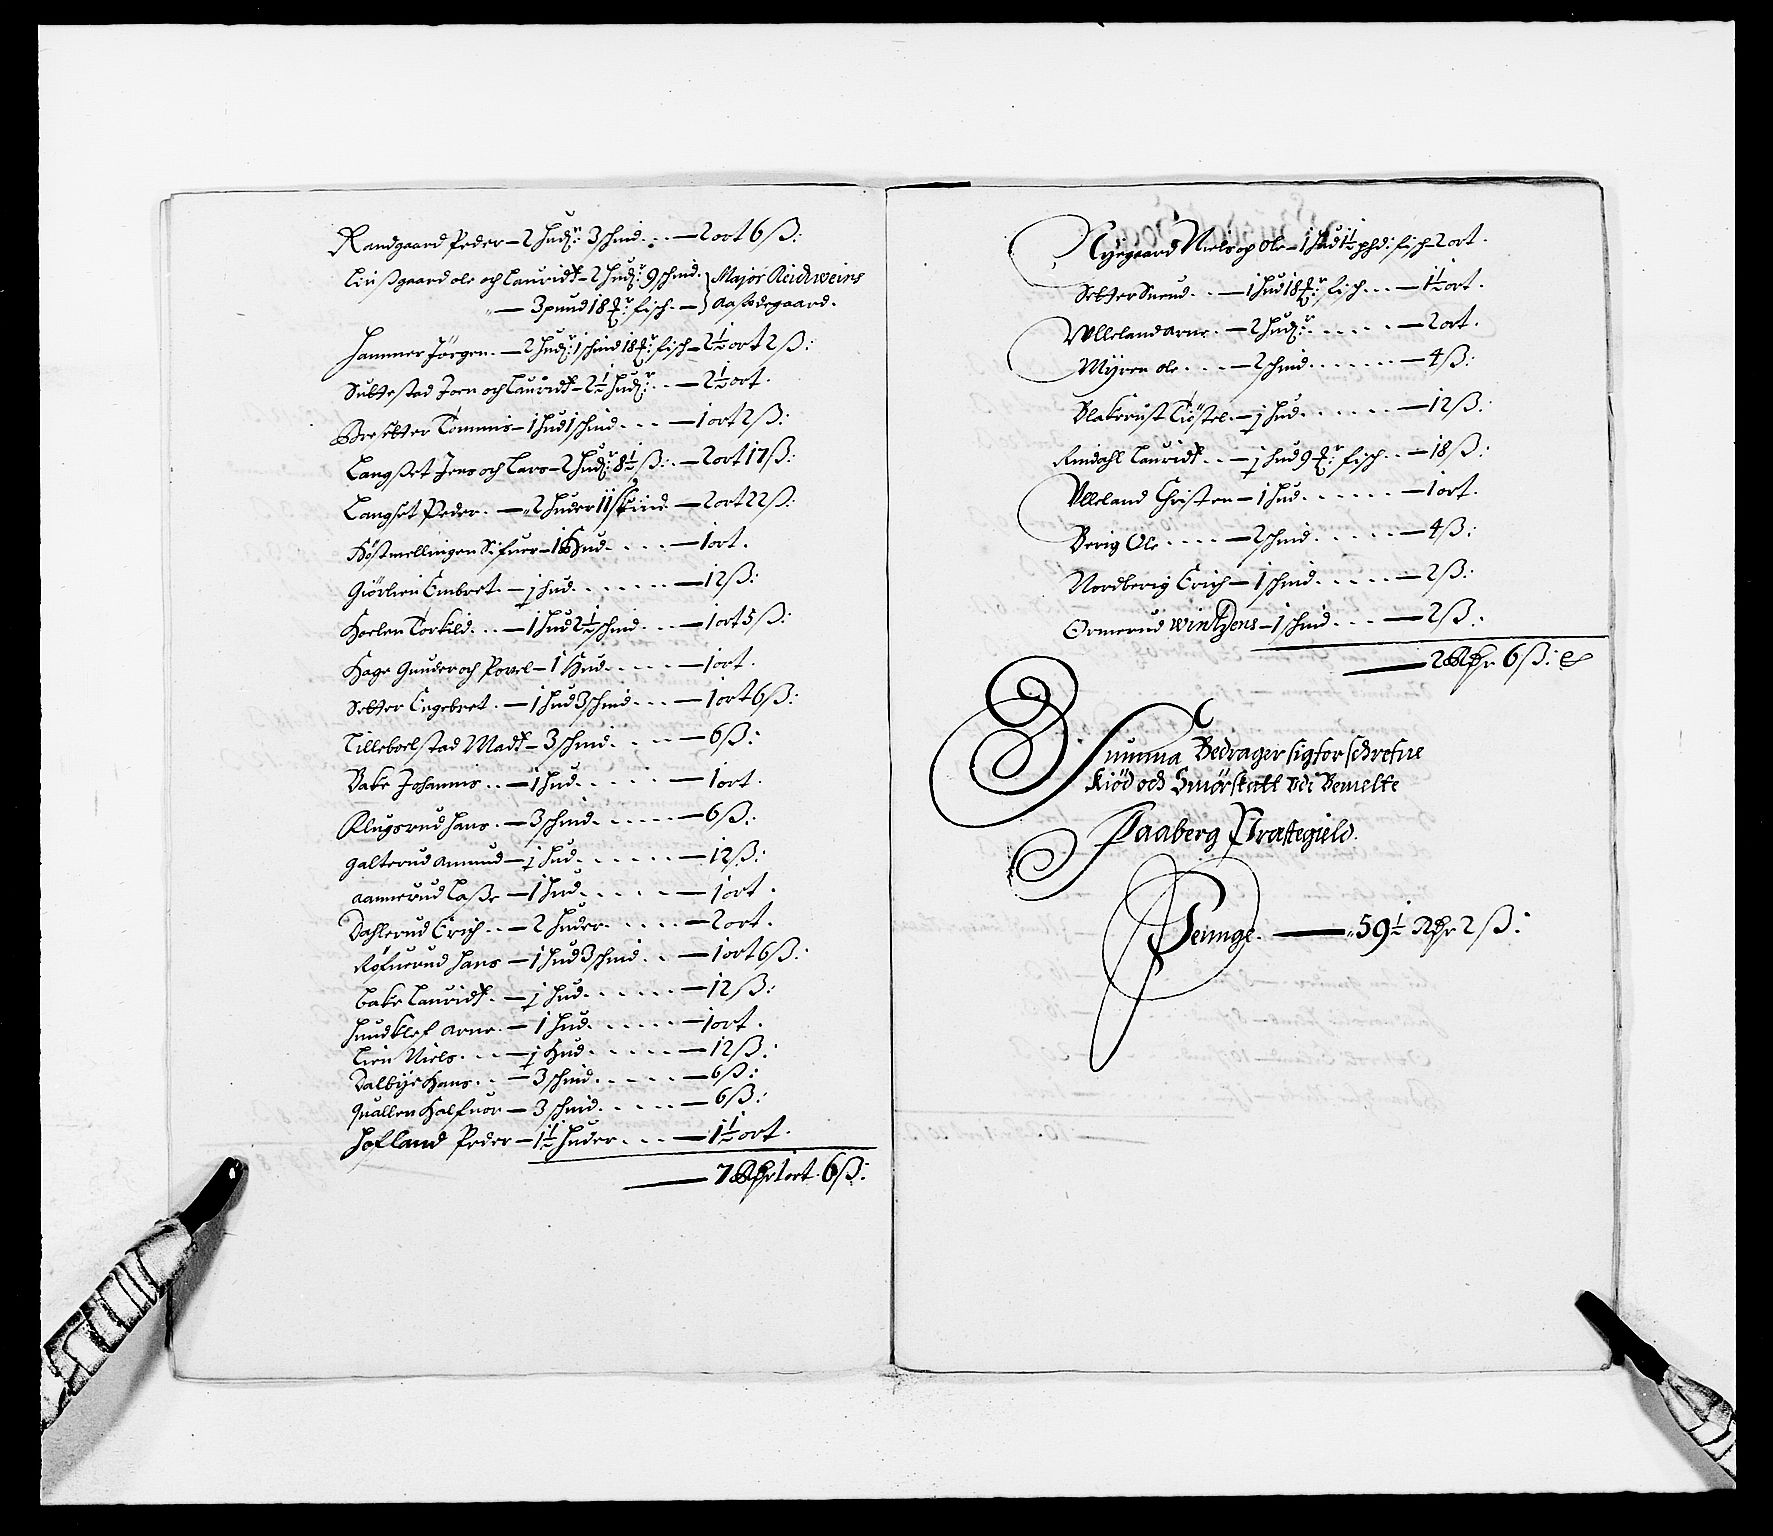 Randgaard Peder – 2 hudr: 3 schind . . . – 2 ort 6 ß:
Linßgaard ole och Lauridtz – 2 hudr: 9 schind. } Major Reichweins
– 3 pund 18 fisch. – } Aassædegaard.
Hammer Jörgen. – 2 hudr: 1 schind 18 fisch – 2½ ort 2 ß:
Suttestad Joen och Lauridtz – 2½ hudr: . . – 2½ ort.
Tommis – 1 hud 1 schind . . . – 1 ort 2 ß:
Langßet Jens och Lars – 2 hudr: 8½ ß: . . – 2 ort 17 ß:
Langset Peder. – 2 huder 11 skiind – 2 ort 22 ß:
Höstmellingen Sifuer – 1 Hud . . . . – 1 ort.
Giörlien Embret. – ½ hud. . . . . . – 12 ß:
Hoelen Torkild. . . – 1 hud 2½ schind . . . – 1 ort 5 ß:
Hage Gunder och Povel – 1 Hud . . . . – 1 ort.
Setter Engebret. – 1 hud 3 schind . . . – 1 ort 6 ß:
Lilleboelstad Madtz – 3 schind. . . . – 6 ß:
Bake Johannis . . – 1 hud. . . . . – 1 ort.
Klugsrud hans. – 3 schind. . . . . – 6 ß:
Galterud Amund – ½ hud. . . . . . – 12 ß:
Aannerud Laße – 1 hud. . . . . – 1 ort.
Dahlerud Erich . . – 2 huder. . . . . – 2 ort.
Röfuerud hans – 1 hud 3 schind . . – 1 ort 6 ß:
Bake Lauridtz. – ½ hud. . . . . – 12 ß:
hundklef Arne. – 1 hud. . . . . – 1 ort.
Lien Niels. . . . – ½ hud . . . . . – 12 ß:
Dalbye Hans. . – 3 schind. . . . . – 6 ß:
Quallen Halfuor – 3 schind. . . . . – 6 ß:
Hofland Peder – 1½ huder . . . – 1½ ort.
– 7 Rdr 1 ort. 6 ß:
Nyegaard Niels och Ole – 1 hud 1½ fisch 2 ort.
Setter Suend. . . – 1 hud 18 fisch . . . – 1½ ort.
Ulleland Arne. – 2 hudr: . . . . . – 2 ort.
Myren ole . . . – 2 schind. . . . . . – 4 ß:
Blakerust Tiöstel. – ½ hud. . . . . . – 12 ß:
Rindahl Lauridtz . . – ½ hud 9 fisch . . – 18 ß:
Ulleland Christen – 1 hud. . . . . . – 1 ort.
Berig Ole . . . . – 2 schind . . . . . – 4 ß:
Nordberig Erich – 1 schind. . . . . – 2 ß:
Ormerud – 1 schind . . . – 2 ß:
– 2 Rdr 6 ß:
Summa Bedrager sig forschrefne
Kiöd och Smörskatt udi Bemelte
Faaberg Præstegield.
Peninge. – 59½ Rdr 2 ß: